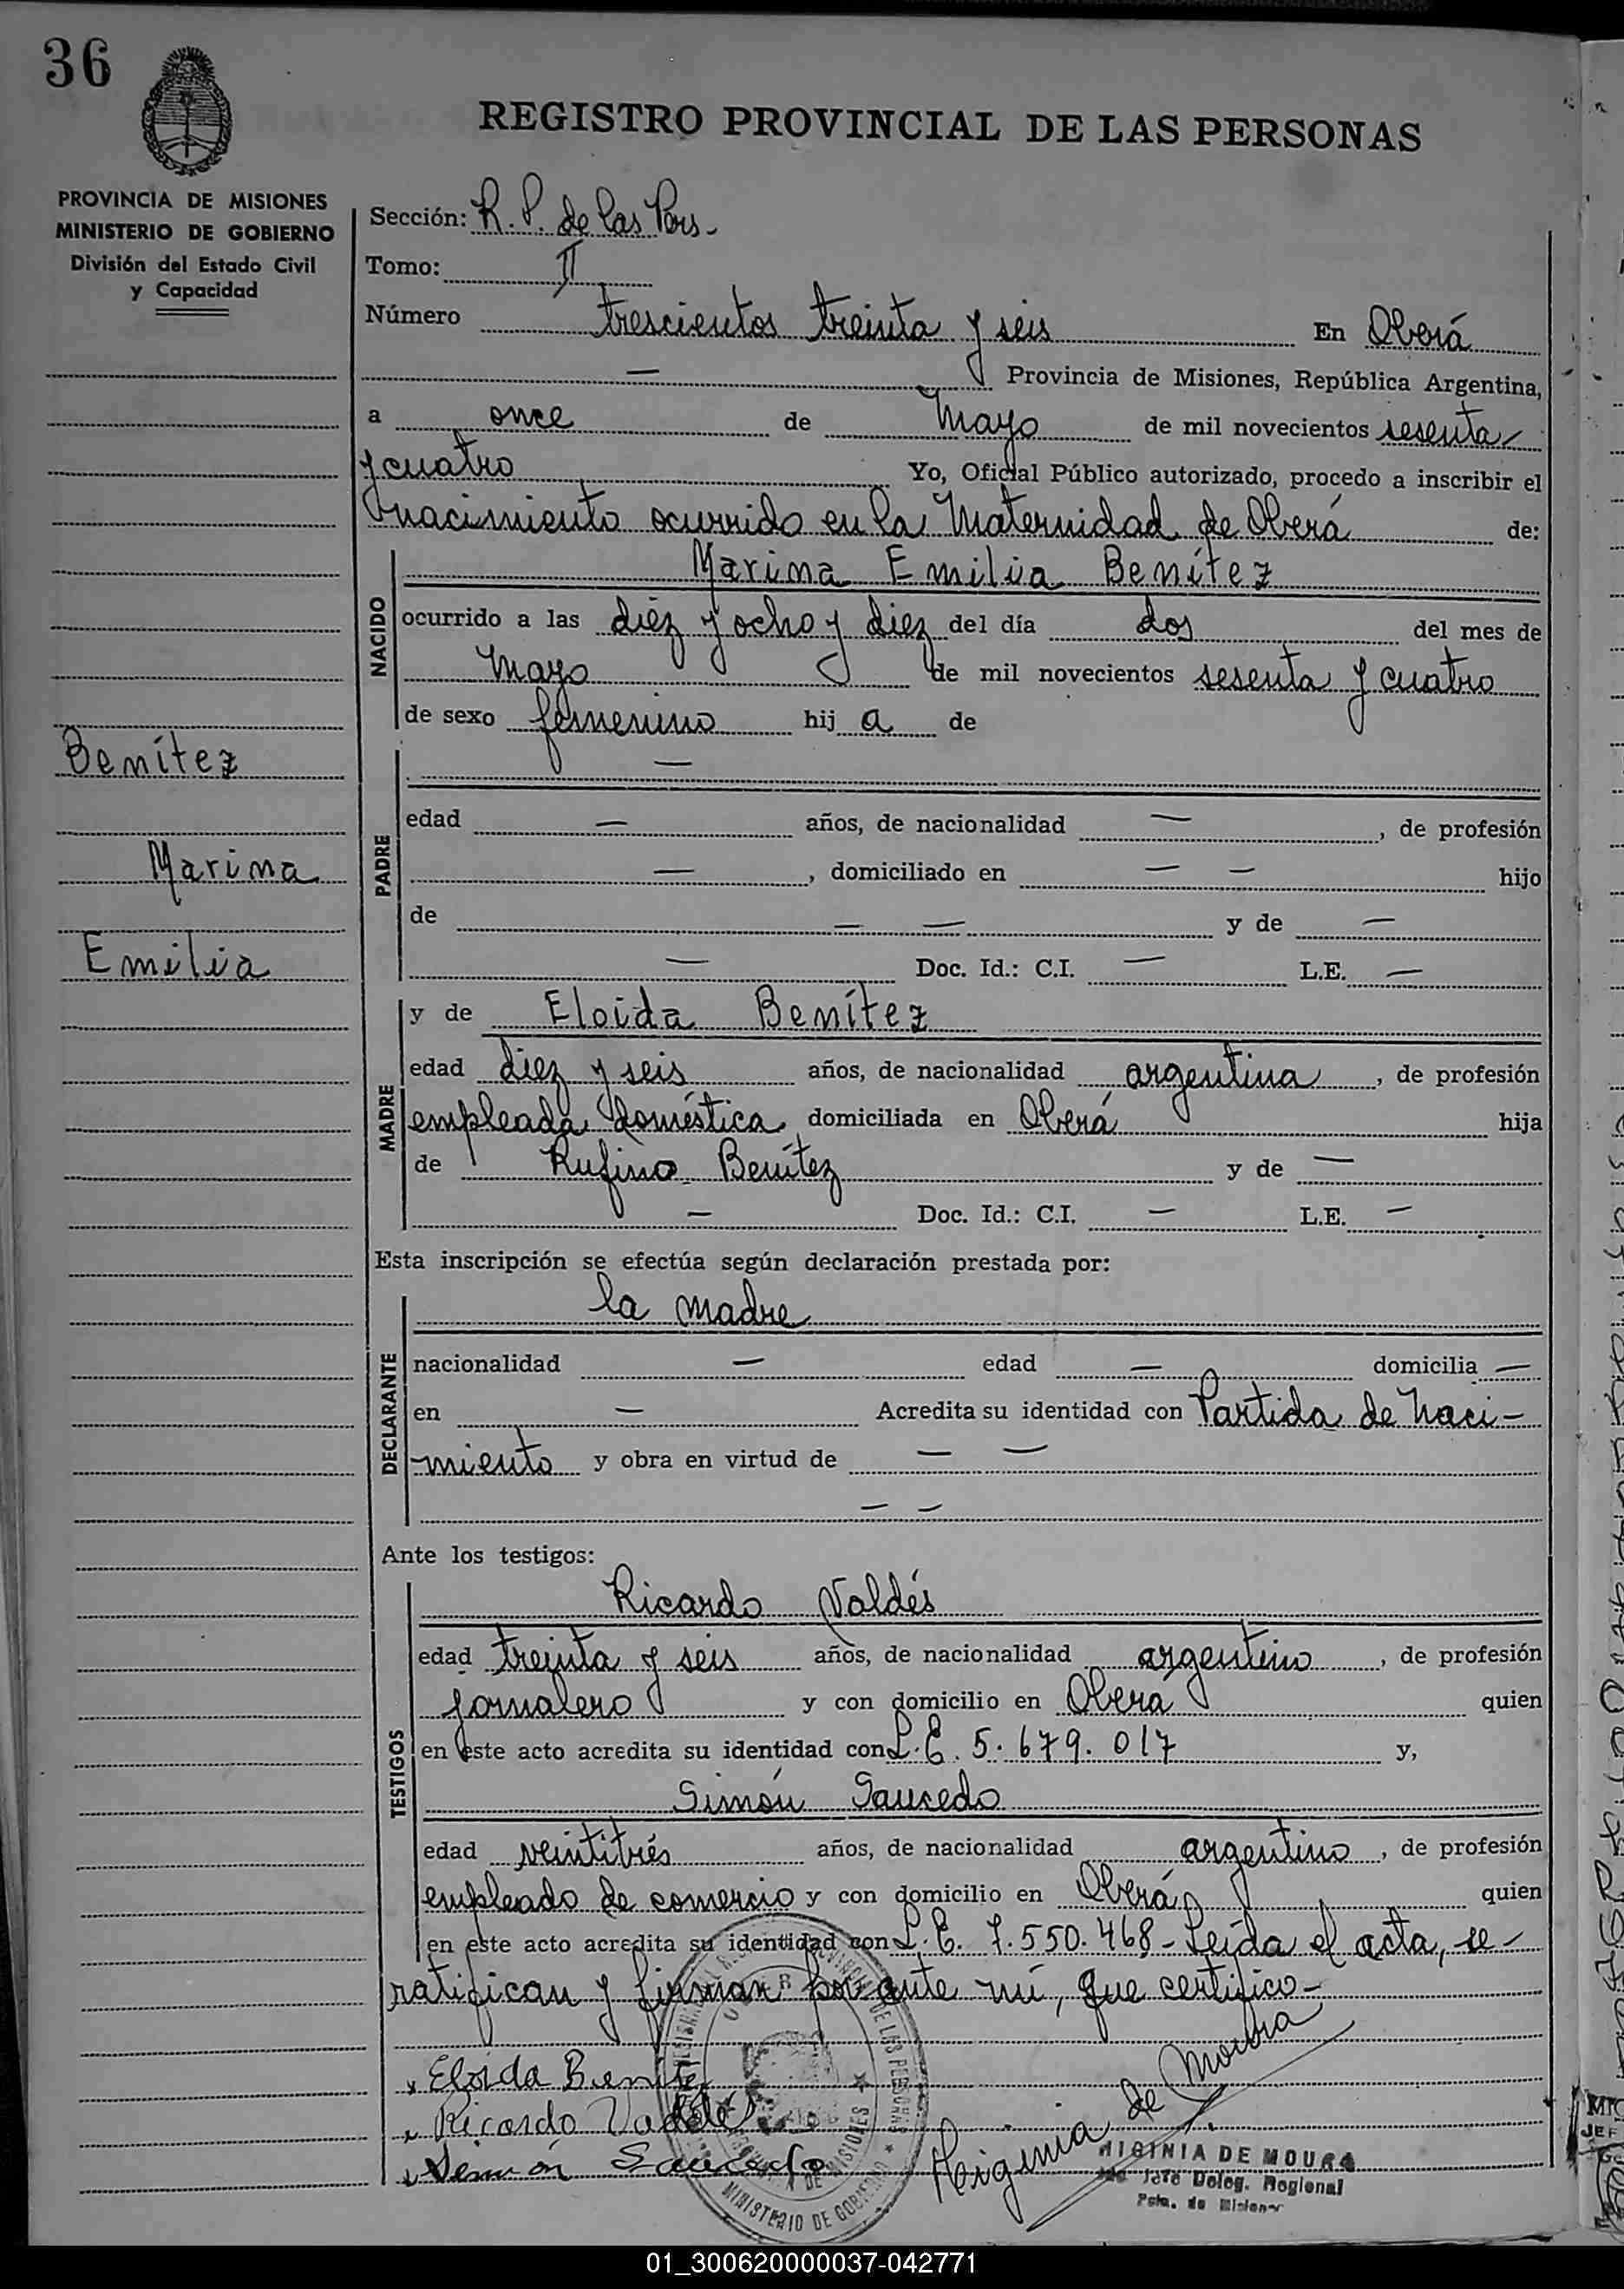 36
REGISTRO PROVINCIAL DE LAS PERSONAS
PROVINCIA DE MISIONES
MINISTERIO DE GOBIERNO
División del Estado Civil
y Capacidad
Sección: R. P. de las Pers.
Tomo: II
Número trescientos treinta y seis En Oberá
— Provincia de Misiones, República Argentina,
a once de Mayo de mil novecientos sesenta
y cuatro Yo, Oficial Público autorizado, procedo a inscribir el
nacimiento ocurrido en la Maternidad de Oberá de:
NACIDO
Marina Emilia Benítez
ocurrido a las diez y ocho y diez del día dos del mes de
Mayo de mil novecientos sesenta y cuatro
de sexo femenino hij a de
Benítez
Marina
Emilia
PADRE
—
edad — años, de nacionalidad —, de profesión
—, domiciliado en — — hijo
de — — y de —
— Doc. Id.: C.I. — L.E. —
MADRE
y de Eloida Benítez
edad diez y seis años, de nacionalidad argentina, de profesión
empleada doméstica domiciliada en Oberá hija
de Rufino Benítez y de —
— Doc. Id.: C.I. — L.E. —
Esta inscripción se efectúa según declaración prestada por:
DECLARANTE
la madre
nacionalidad — edad — domicilia —
en — Acredita su identidad con Partida de Naci-
miento y obra en virtud de — —
— —
Ante los testigos:
TESTIGOS
Ricardo Valdés
edad treinta y seis años, de nacionalidad argentino, de profesión
jornalero y con domicilio en Oberá quien
en este acto acredita su identidad con L.E. 5.679.017 y,
Simón Saucedo
edad veintitrés años, de nacionalidad argentino, de profesión
empleado de comercio y con domicilio en Oberá quien
en este acto acredita su identidad con L.E. 7.550.468- Leída el acta, se-
ratifican y firman por ante mí, que certifico-
Eloida Benitez
Ricardo Valdes
Simón Saucedo
Higinia de Moura
HIGINIA DE MOURA
Jefe Deleg. Regional
Pcia. de Misiones
MINISTERIO DE GOBIERNO
01_300620000037-042771